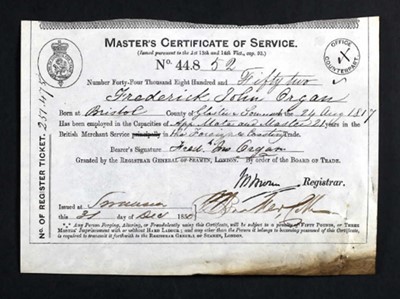 MASTER'S CERTIFICATE OF SERVICE.
(Issued pursuant to the Act 13th and 14th Vict., cap. 93.)
OFFICE COUNTERPART
No. 44.8 52
Number Forty-Four Thousand Eight Hundred and Fifty two
Frederick John Organ
Born at Bristol County of Gloster & Somerset on 24 Aug 1817
Has been employed in the Capacities of App Mate and Master 21 years in the
British Merchant Service principally in the Foreign & Coasting trade.
Bearer's Signature Fred. Jno Organ
Granted by the REGISTRAR GENERAL OF SEAMEN, LONDON. By order of the BOARD OF TRADE.
Registrar.
Issued at Swansea
this 31 day of Dec 1850
*** Any Person Forging, Altering, or Fraudulently using this Certificate, will be subject to a penalty of FIFTY POUNDS, or THREE
MONTHS' Imprisonment with or without HARD LABOUR; and any other than the Person it belongs to becoming possessed of this Certificate,
is required to transmit it forthwith to the REGISTRAR GENERAL OF SEAMEN, LONDON.
No. OF REGISTER TICKET.